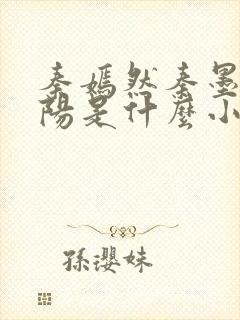 秦嫣然秦墨
陽是什麼小
孫瓔妹